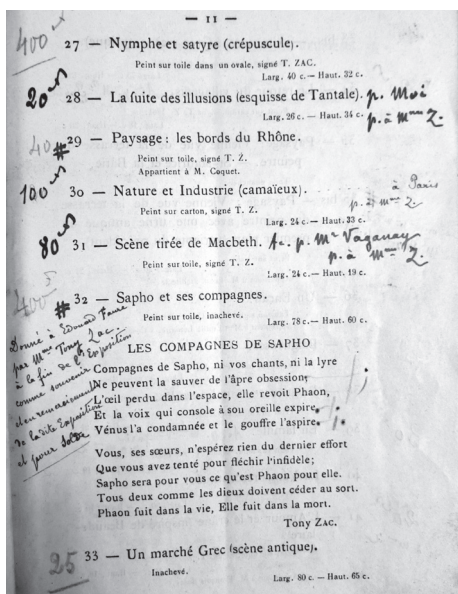 — 11 —
400
27 — Nymphe et satyre (crépuscule).
Peint sur toile dans un ovale, signé T. ZAC.
Larg. 40 c. — Haut. 32 c.
20
28 — La fuite des illusions (esquisse de Tantale). p. Moi
Larg. 26 c. — Haut. 34 c. p. à Mme Z.
40
#29 — Paysage : les bords du Rhône.
Peint sur toile, signé T. Z.
Appartient à M. Coquet.
100
30 — Nature et Industrie (camaïeux). à Paris
Peint sur carton, signé T. Z. p. à Mme Z
Larg. 24 c. — Haut. 33 c.
80
31 — Scène tirée de Macbeth. Ac. p. Mr Vaganay
Peint sur toile, signé T. Z. p. à Mme Z.
Larg. 24 c. — Haut. 19 c.
400
#32 — Sapho et ses compagnes.
Peint sur toile, inachevé.
Larg. 78 c. — Haut. 60 c.
Donné à Edouard Faure
par Mme Tony Zac.
à la fin de l'Exposition
comme souvenir
et en remerciement
de la dite Exposition
et pour solde
LES COMPAGNES DE SAPHO
Compagnes de Sapho, ni vos chants, ni la lyre
Ne peuvent la sauver de l'âpre obsession;
L'œil perdu dans l'espace, elle revoit Phaon,
Et la voix qui console à son oreille expire.
Vénus l'a condamnée et le gouffre l'aspire.
Vous, ses sœurs, n'espérez rien du dernier effort
Que vous avez tenté pour fléchir l'infidèle;
Sapho sera pour vous ce qu'est Phaon pour elle.
Tous deux comme les dieux doivent céder au sort.
Phaon fuit dans la vie, Elle fuit dans la mort.
Tony ZAC.
25
33 — Un marché Grec (scène antique).
Inachevé.
Larg. 80 c. — Haut. 65 c.